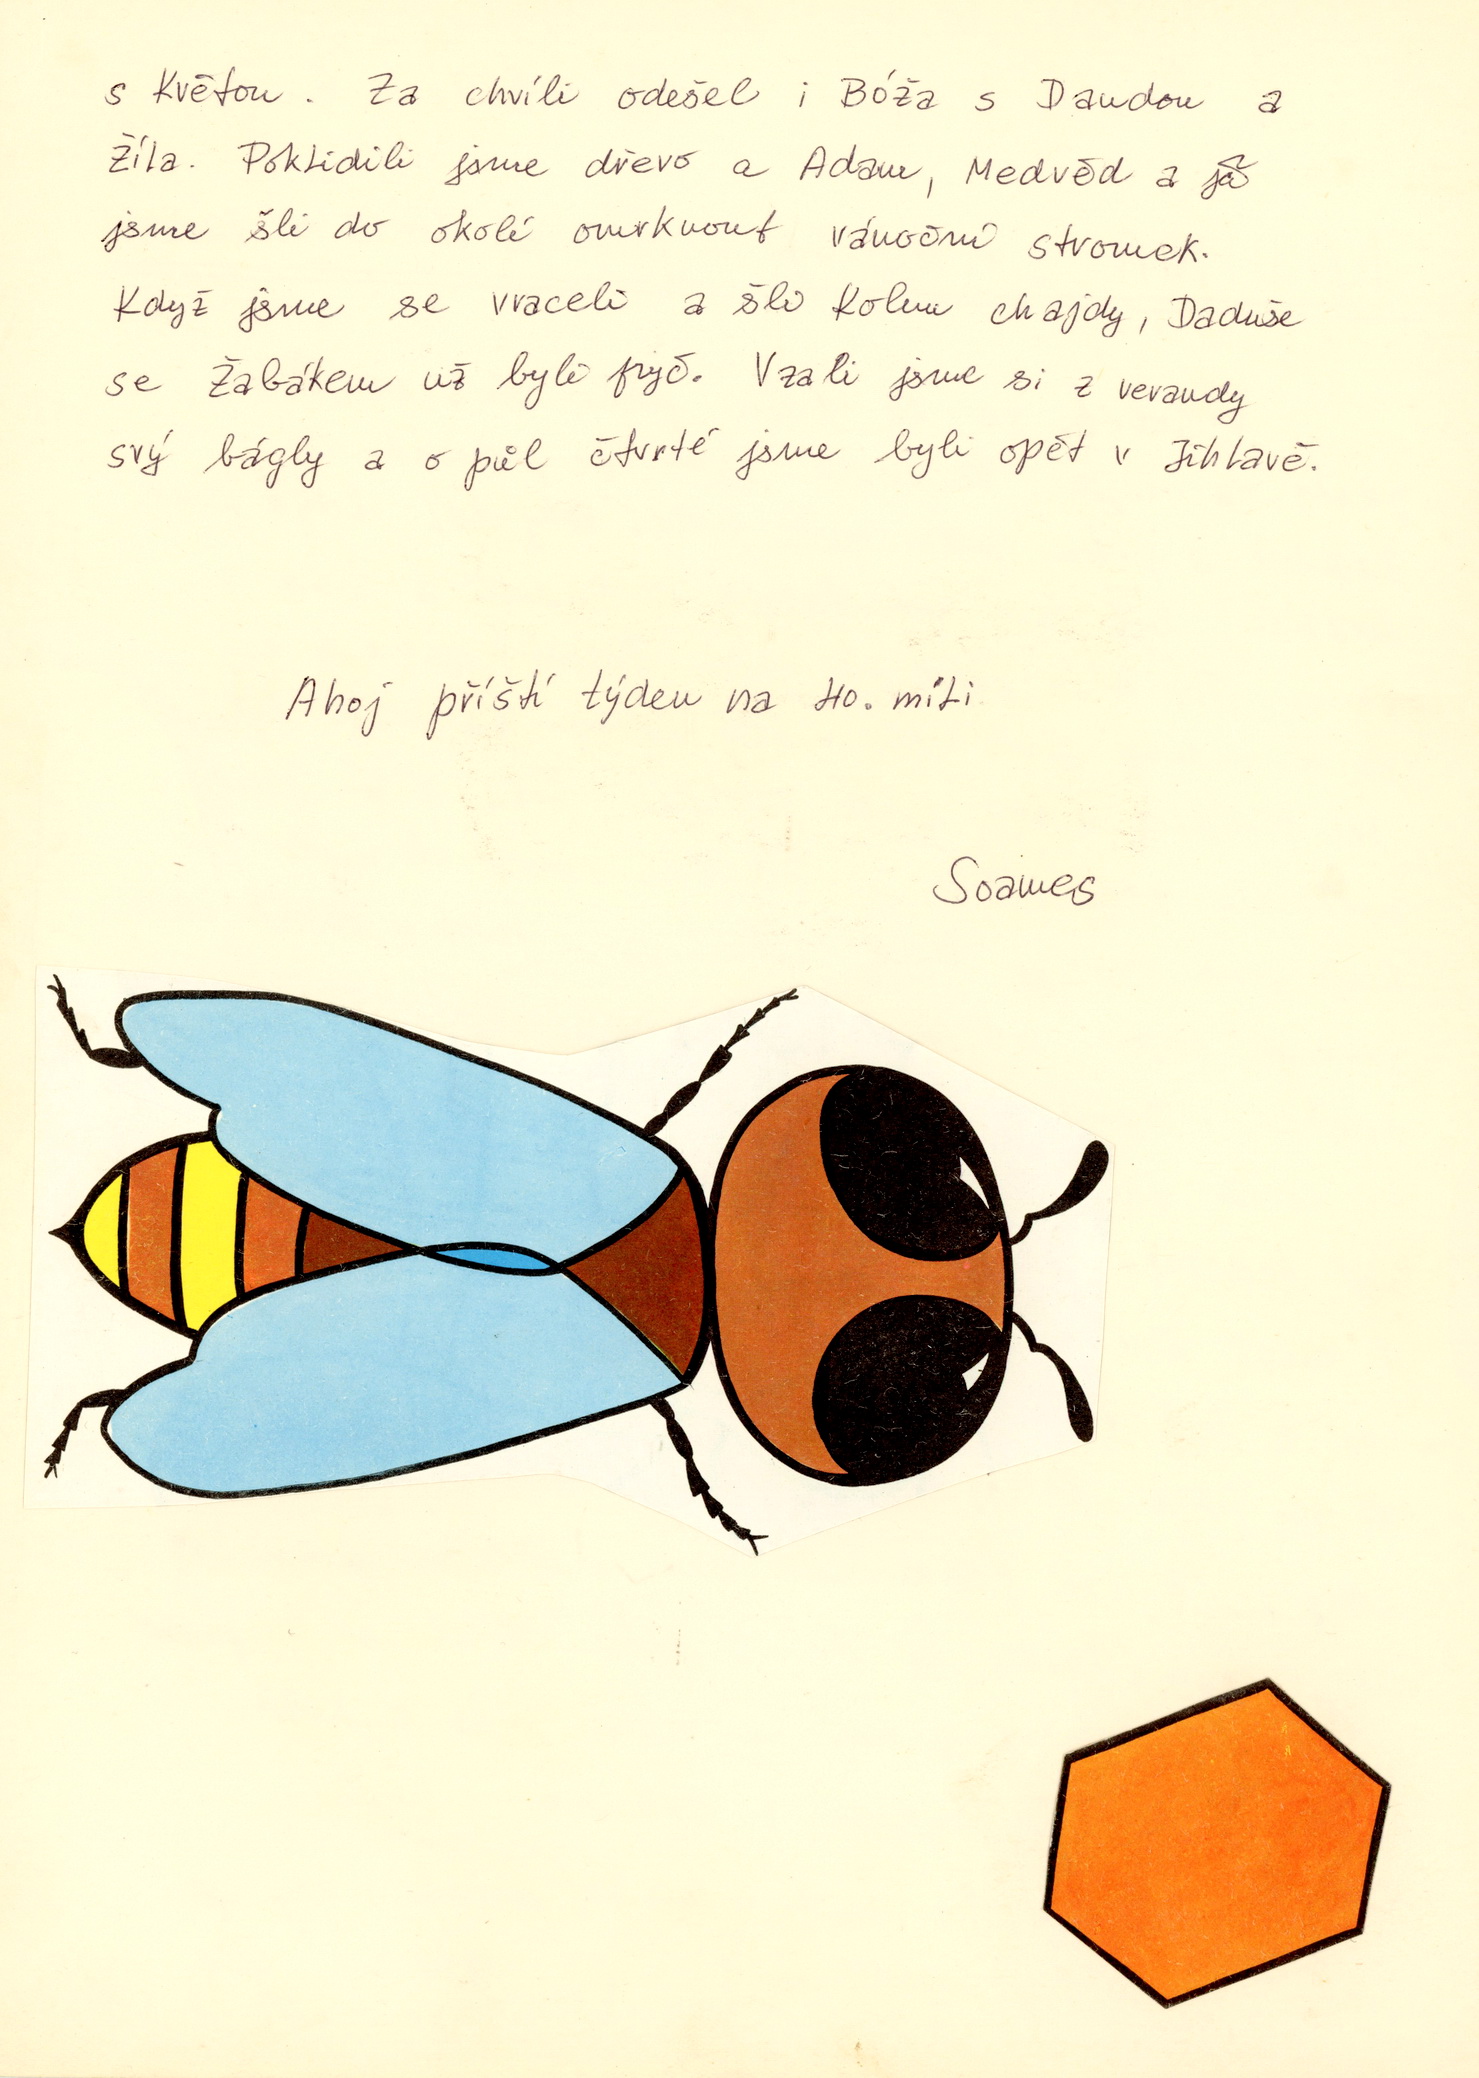 s Květou. Za chvíli odešel i Bóža s Dandou a
Žíla. Poklidili jsme dřevo a Adam, Medvěd a já
jsme šli do okolí omrknout vánoční stromek.
Když jsme se vraceli a šli kolem chajdy, Daduše
se Žabákem už byli fryč. Vzali jsme si z verandy
svý bágly a o půl čtvrté jsme byli opět v Jihlavě.
Ahoj příští týden na Ho. míti
Soames